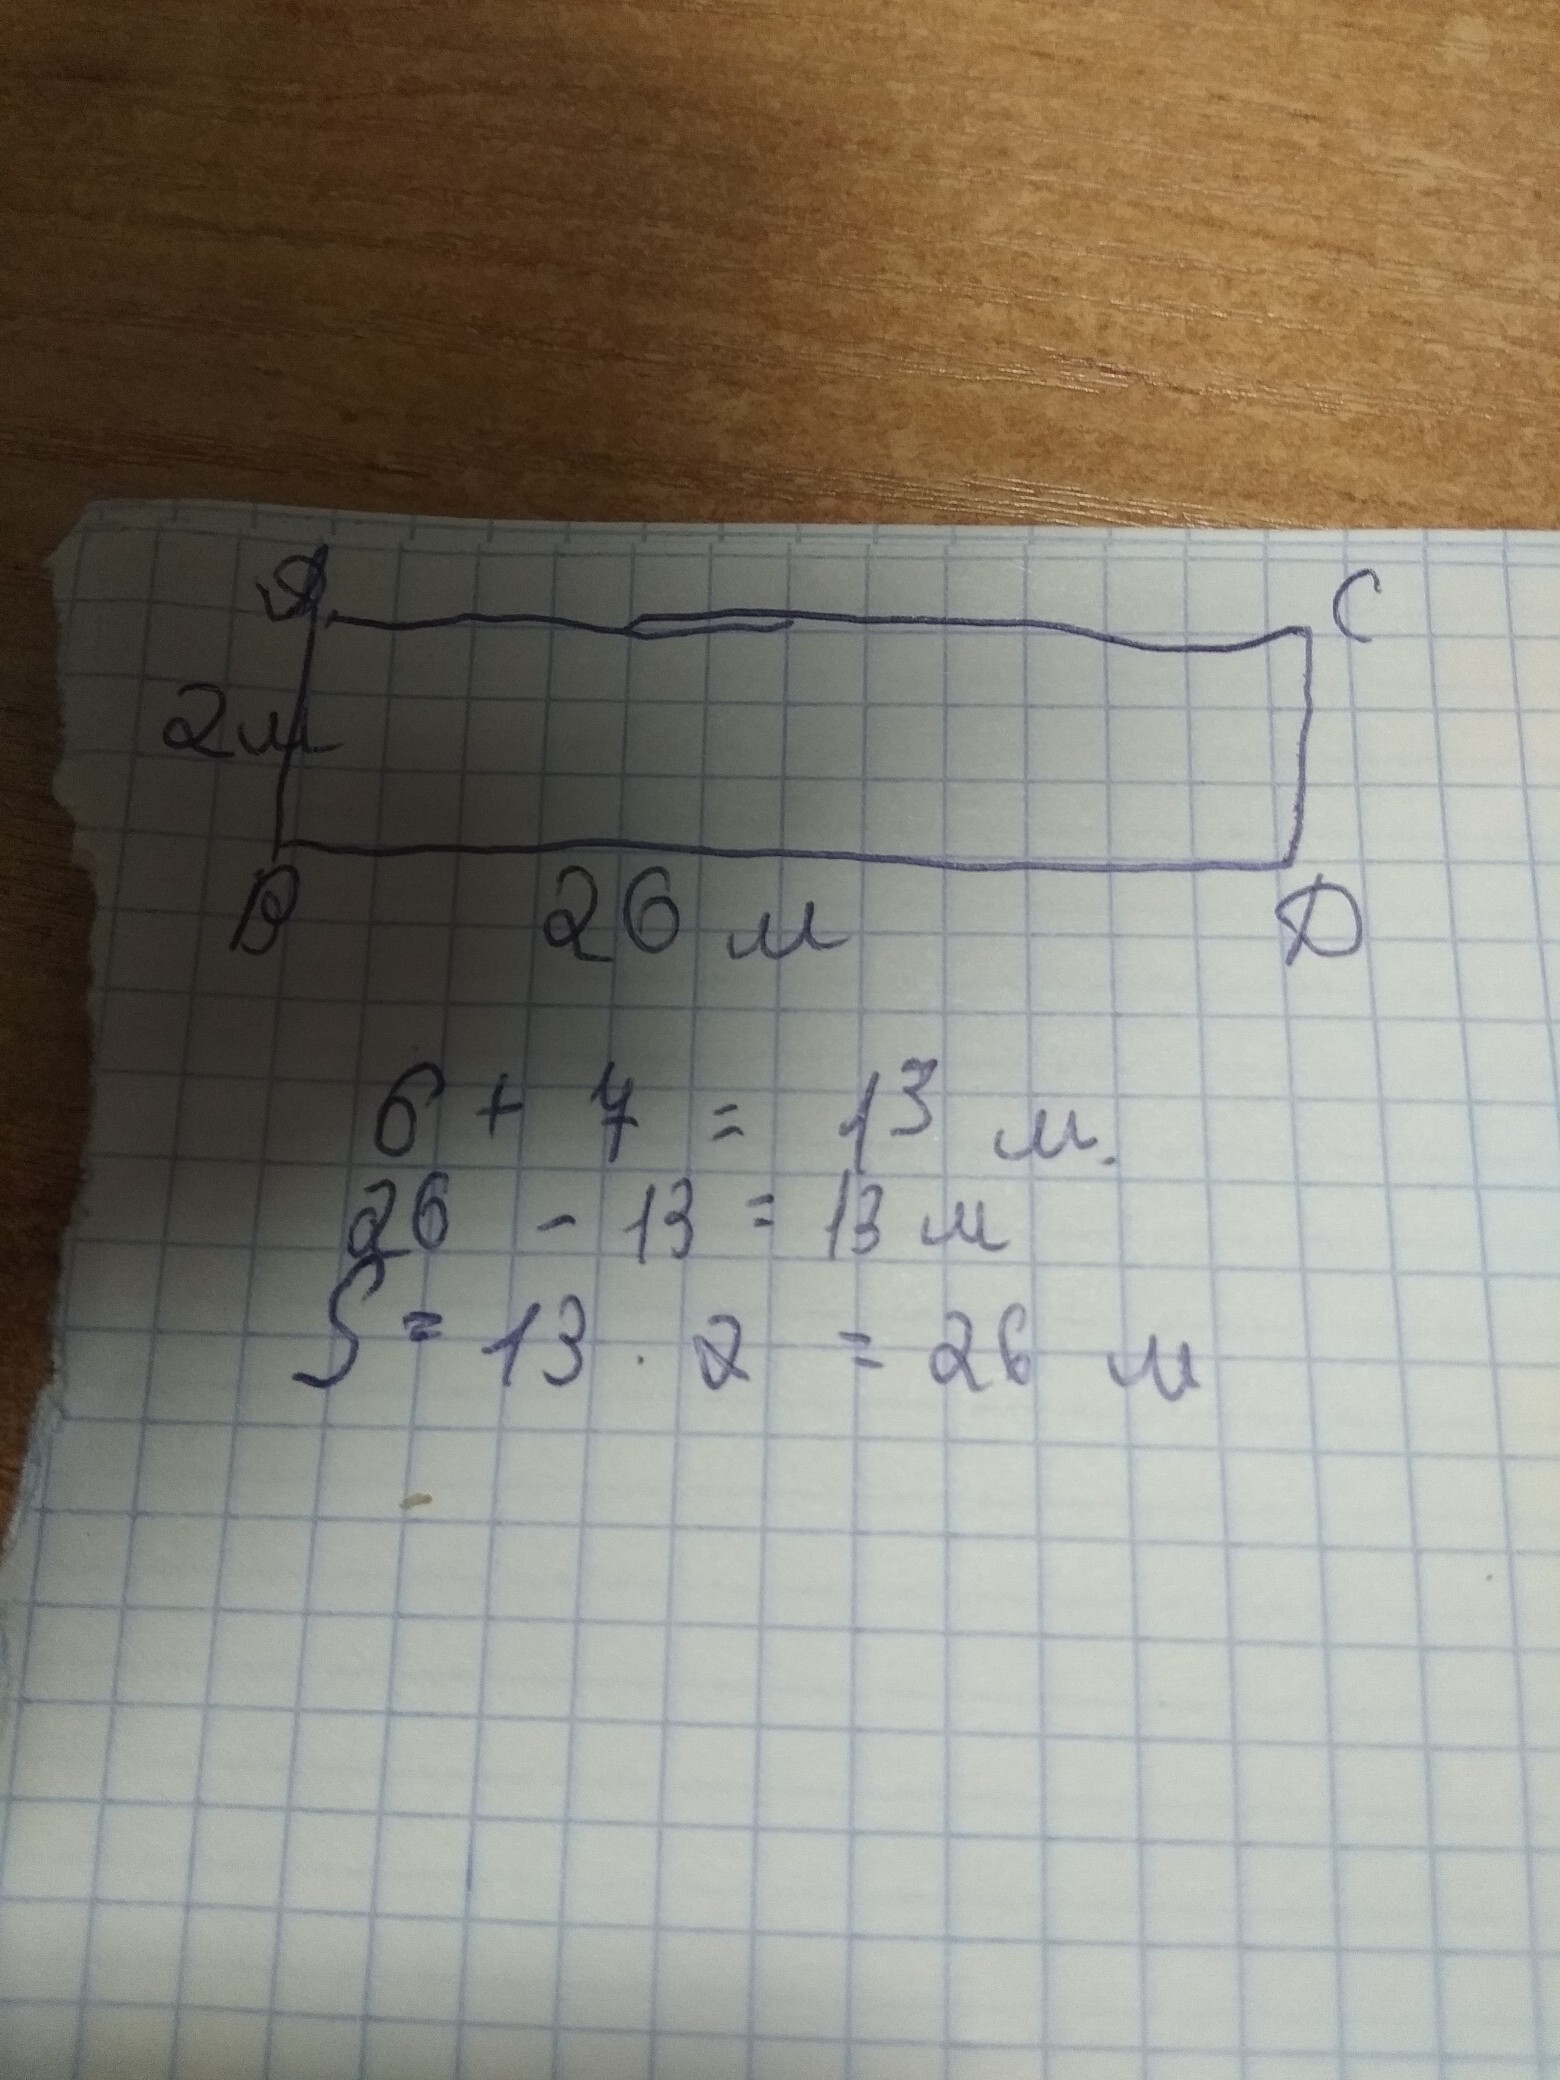 А С
2м
В 26 м D
6 + 7 = 13 м.
26 - 13 = 13 м
S = 13 . 2 = 26 м